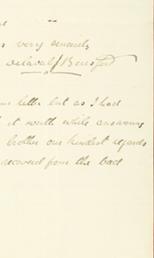 very sincerely
Delaval J Beresford
letter but as I had
it worth while answering
brother our kindest regards
recovered from the bad